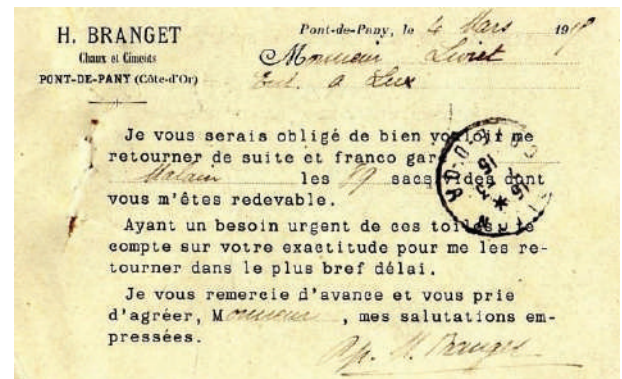 H. BRANGET
Chaux et Ciments
PONT-DE-PANY (Côte-d'Or)
Pont-de-Pany, le 4 Mars 191
Monsieur Liviet
Ent. à Lux
Je vous serais obligé de bien vouloir me
retourner de suite et franco gare
Malain les 89 sacs vides dont
vous m'êtes redevable.
Ayant un besoin urgent de ces toiles, je
compte sur votre exactitude pour me les re-
tourner dans le plus bref délai.
Je vous remercie d'avance et vous prie
d'agréer, Monsieur, mes salutations em-
pressées.
H. Branget